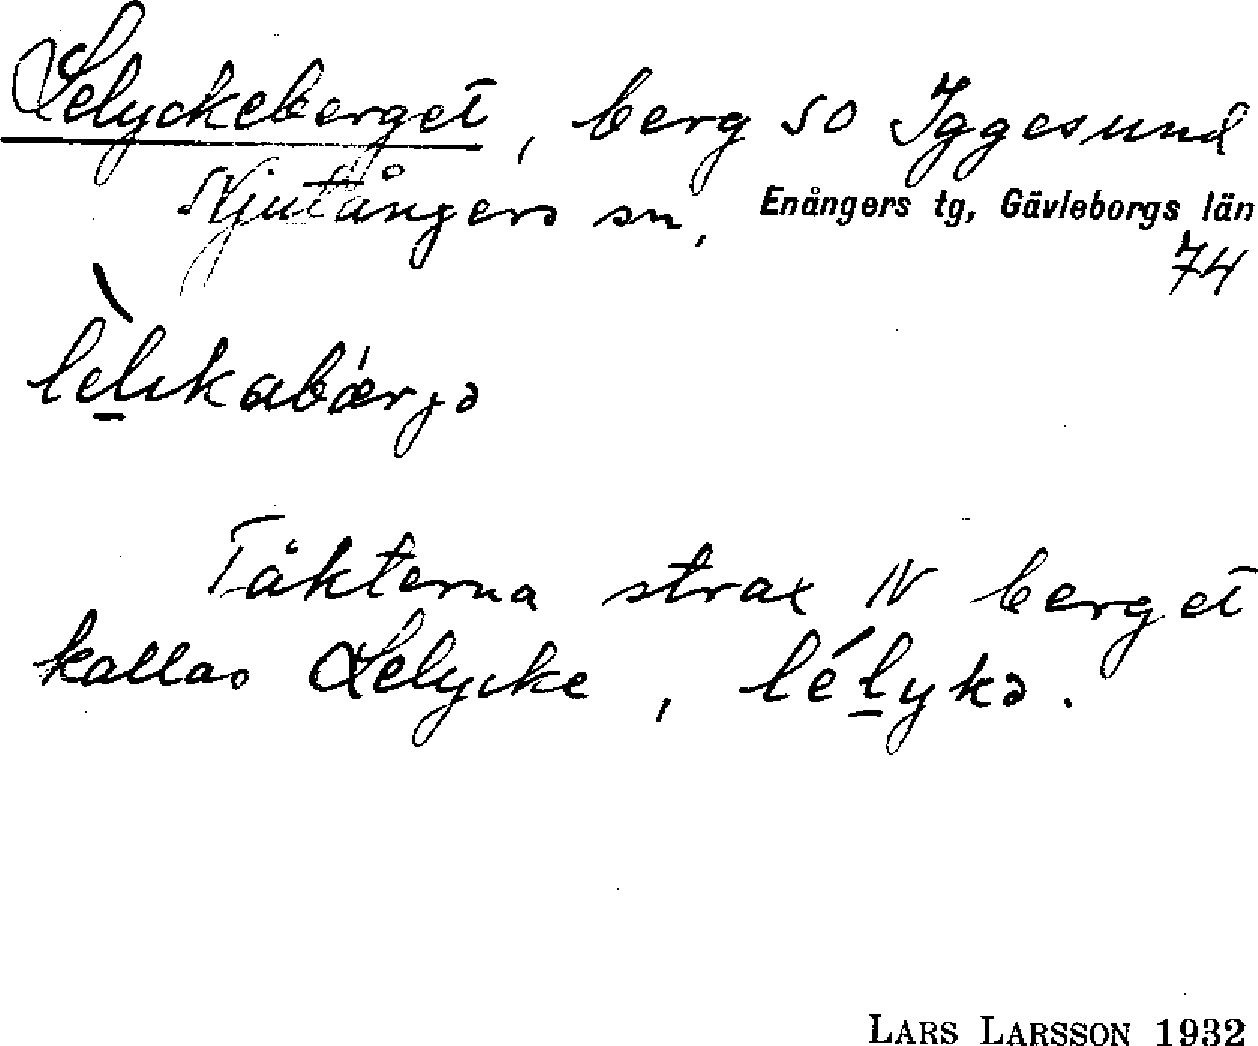 Lelyckeberget, berg SO Iggesund
Njutångers sn, Enångers tg, Gävleborgs län
74
lèlikabǽrjə
Täkterna strax N berget
kallas Lelycke, lélykə.
LARS LARSSON 1932